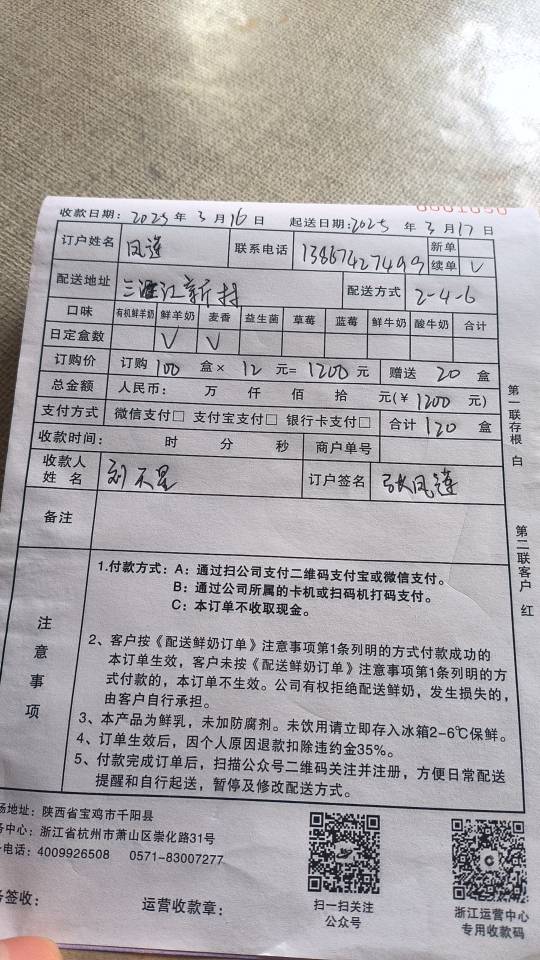 0001090
收款日期: 2025 年 3 月 16 日 起送日期: 2025 年 3 月 17 日
订户姓名 凤莲 联系电话 13867427499 新单
续单 V
配送地址 三涯江新村 配送方式 2-4-6
口味 有机鲜羊奶 鲜羊奶 麦香 益生菌 草莓 蓝莓 鲜牛奶 酸牛奶 合计
日定盒数 V V
订购价 订购 100 盒× 12 元= 1200 元 赠送 20 盒
总金额 人民币: 万 仟 佰 拾 元(¥ 1200 元)
支付方式 微信支付□ 支付宝支付□ 银行卡支付□ 合计 120 盒
收款时间: 时 分 秒 商户单号
收款人姓名 刘天星 订户签名 张凤莲
备注
第一联存根 白
第二联客户 红
注意事项
1.付款方式: A: 通过扫公司支付二维码支付宝或微信支付。
B: 通过公司所属的卡机或扫码机打码支付。
C: 本订单不收取现金。
2、客户按《配送鲜奶订单》注意事项第1条列明的方式付款成功的
本订单生效，客户未按《配送鲜奶订单》注意事项第1条列明的方
式付款的，本订单不生效。公司有权拒绝配送鲜奶，发生损失的，
由客户自行承担。
3、本产品为鲜乳，未加防腐剂。未饮用请立即存入冰箱2-6℃保鲜。
4、订单生效后，因个人原因退款扣除违约金35%。
5、付款完成订单后，扫描公众号二维码关注并注册，方便日常配送
提醒和自行起送，暂停及修改配送方式。
场地址: 陕西省宝鸡市千阳县
务中心: 浙江省杭州市萧山区崇化路31号
电话: 4009926508 0571-83007277
签收: 运营收款章:
扫一扫关注
公众号
浙江运营中心
专用收款码